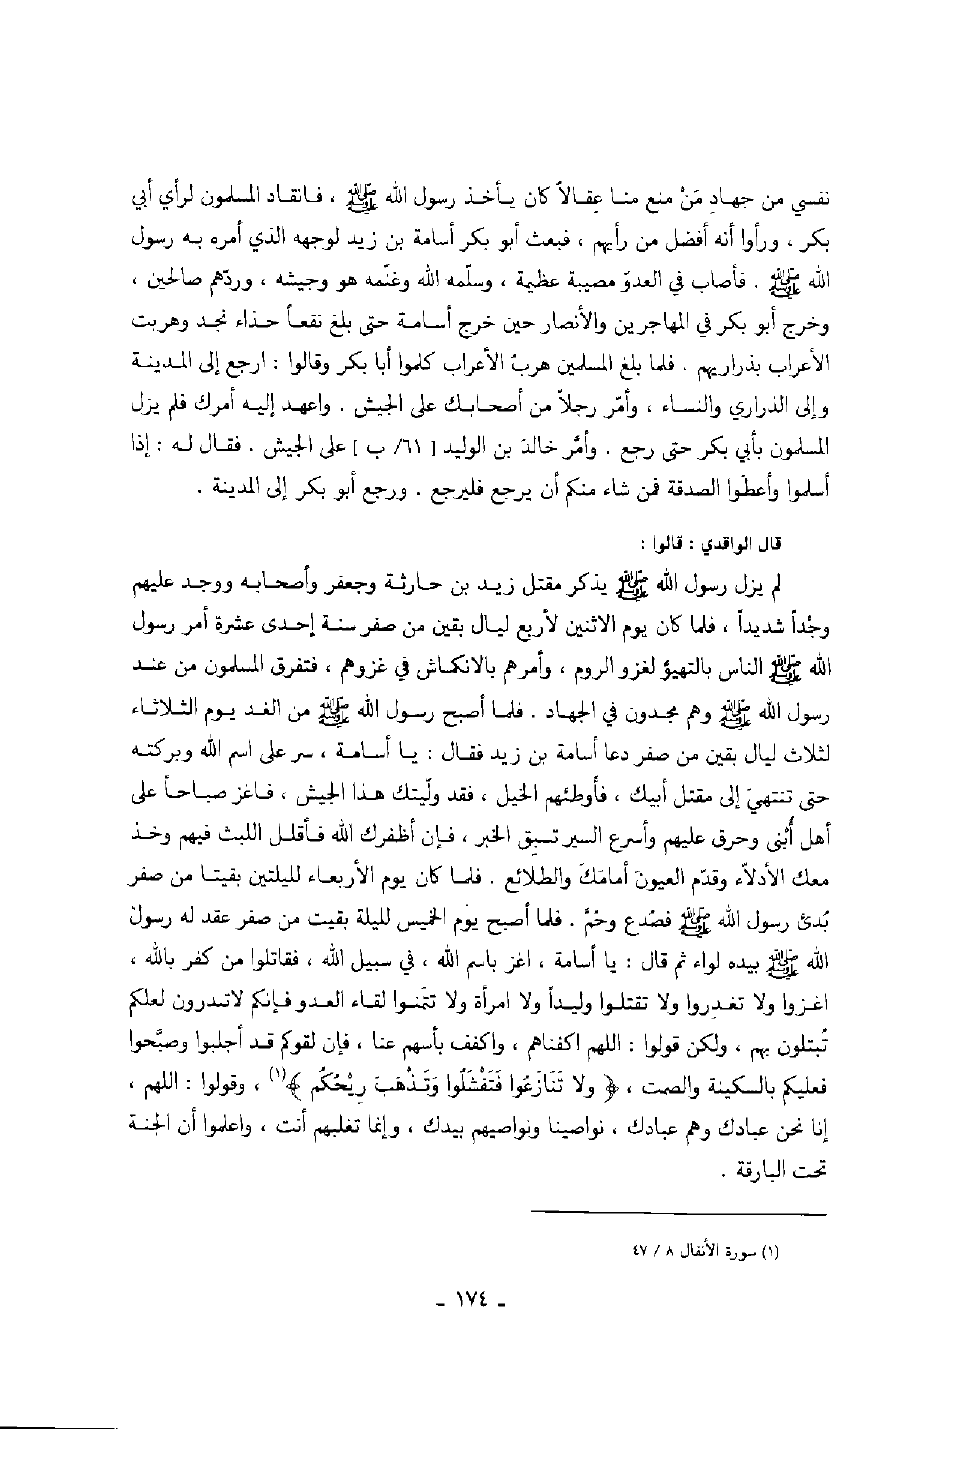 نفسي من جهادِ مَنْ منع منا عِقالاً كان يأخذ رسول الله ﷺ ، فانقاد المسلمون لرأي أبي
بكر ، ورأوا أنه أفضل من رأيهم ، فبعث أبو بكر أسامة بن زيد لوجهه الذي أمره به رسول
الله ﷺ . فأصاب في العدوّ مصيبة عظيمة ، وسلّمه الله وغنّمه هو وجيشه ، وردّهم صالحين ،
وخرج أبو بكر في المهاجرين والأنصار حين خرج أسامة حتى بلغ نقعاً حذاء نجد وهربت
الأعراب بذراريهم . فلما بلغ المسلمين هربُ الأعراب كلموا أبا بكر وقالوا : ارجع إلى المدينة
وإلى الذراري والنساء ، وأمّر رجلاً من أصحابك على الجيش . واعهد إليه أمرك فلم يزل
المسلمون بأبي بكر حتى رجع . وأمَّر خالدَ بن الوليد [ ٦١/ ب ] على الجيش . فقال له : إذا
أسلموا وأعطَوا الصدقة فمن شاء منكم أن يرجع فليرجع . ورجع أبو بكر إلى المدينة .
قال الواقدي : قالوا :
لم يزل رسول الله ﷺ يذكر مقتل زيد بن حارثة وجعفر وأصحابه ووجد عليهم
وجْداً شديداً ، فلما كان يوم الاثنين لأربع ليال بقين من صفر سنة إحدى عشرة أمر رسول
الله ﷺ الناس بالتهيؤ لغزو الروم ، وأمرهم بالانكماش في غزوهم ، فتفرق المسلمون من عند
رسول الله ﷺ وهم مجدون في الجهاد . فلما أصبح رسول الله ﷺ من الغد يوم الثلاثاء
لثلاث ليال بقين من صفر دعا أسامة بن زيد فقال : يا أسامة ، سر على اسم الله وبركته
حتى تنتهيَ إلى مقتل أبيك ، فأوطئهم الخيل ، فقد ولّيتك هذا الجيش ، فاغز صباحاً على
أهل أُبْنى وحرق عليهم وأسرع السير تسبق الخبر ، فإن أظفرك الله فأقلل اللبث فيهم وخذ
معك الأدلاّء وقدّم العيونَ أمامَكَ والطلائع . فلما كان يوم الأربعاء لليلتين بقيتا من صفر
بُدئ رسول الله ﷺ فصُدع وحُمّ . فلما أصبح يوم الخميس لليلة بقيت من صفر عقد له رسول
الله ﷺ بيده لواء ثم قال : يا أسامة ، اغز باسم الله ، في سبيل الله ، فقاتلوا من كفر بالله ،
اغزوا ولا تغدروا ولا تقتلوا وليداً ولا امرأة ولا تمنوا لقاء العدو فإنكم لا تدرون لعلكم
تُبتلون بهم ، ولكن قولوا : اللهم اكفناهم ، واكفف بأسهم عنا ، فإن لقوكم قد أجلبوا وصبَّحوا
فعليكم بالسكينة والصمت ، ﴿ ولا تَنَازَعُوا فَتَفْشَلُوا وَتَذْهَبَ رِيْحُكُم ﴾(١) ، وقولوا : اللهم ،
إنا نحن عبادك وهم عبادك ، نواصينا ونواصيهم بيدك ، وإنما تغلبهم أنت ، واعلموا أن الجنة
تحت البارقة .
(١) سورة الأنفال ٨ / ٤٧
- ١٧٤ -